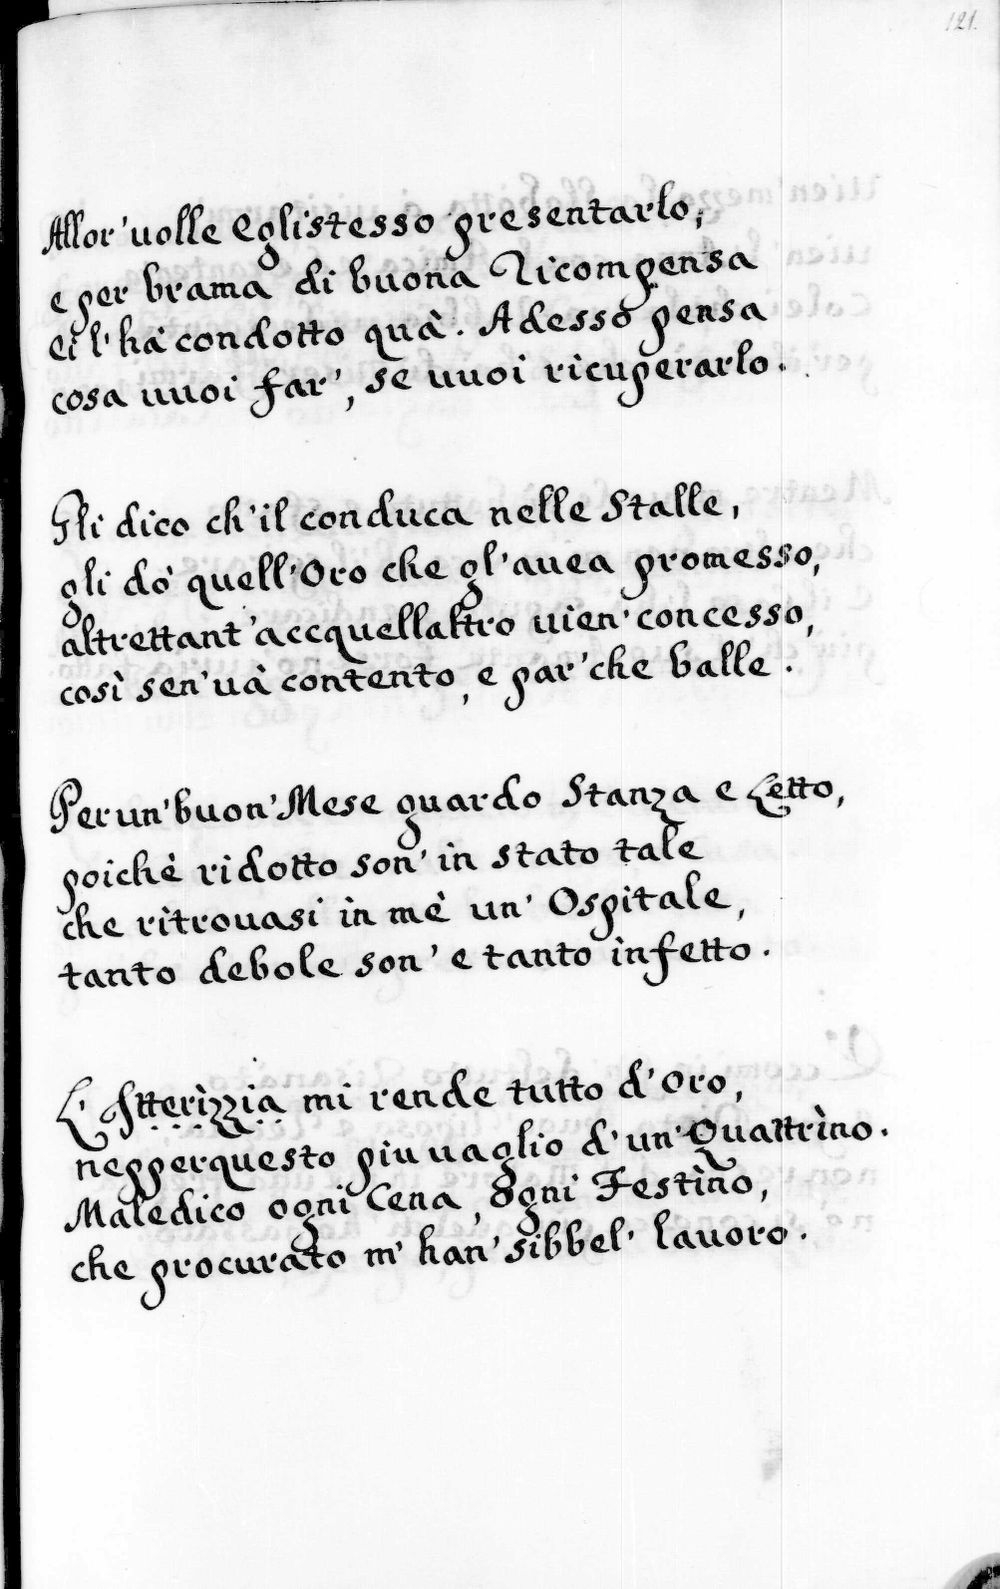 121.
Allor' uolle Egli stesso presentarlo,
e per brama di buona Ricompensa
Ei l' hà condotto quà. Adesso pensa
cosa uuoi far', se uuoi ricuperarlo.
Gli dico ch' il conduca nelle Stalle,
gli dò quell' Oro che gl' auea promesso,
altrettant' accquellaltro uien' concesso,
così sen' uà contento, e par' che balle.
Per un' buon' Mese guardo Stanza e Letto,
poichè ridotto son' in stato tale
che ritrouasi in mè un' Ospitale,
tanto debole son' e tanto infetto.
L' Itterizzia mi rende tutto d' Oro,
nepperquesto piu uaglio d' un' Quattrino.
Maledico ogni Cena, ogni Festino,
che procurato m' han' sibbel' lauoro.